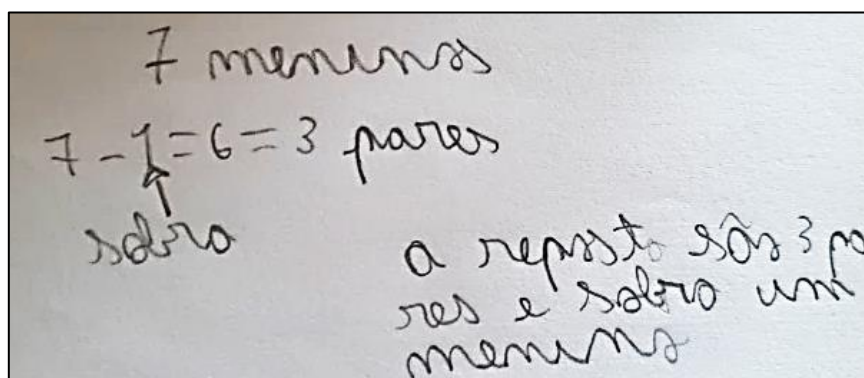 7 meninos
7 - 1 = 6 = 3 pares
sobra
a reposta são 3 pa
res e sobra um
menino